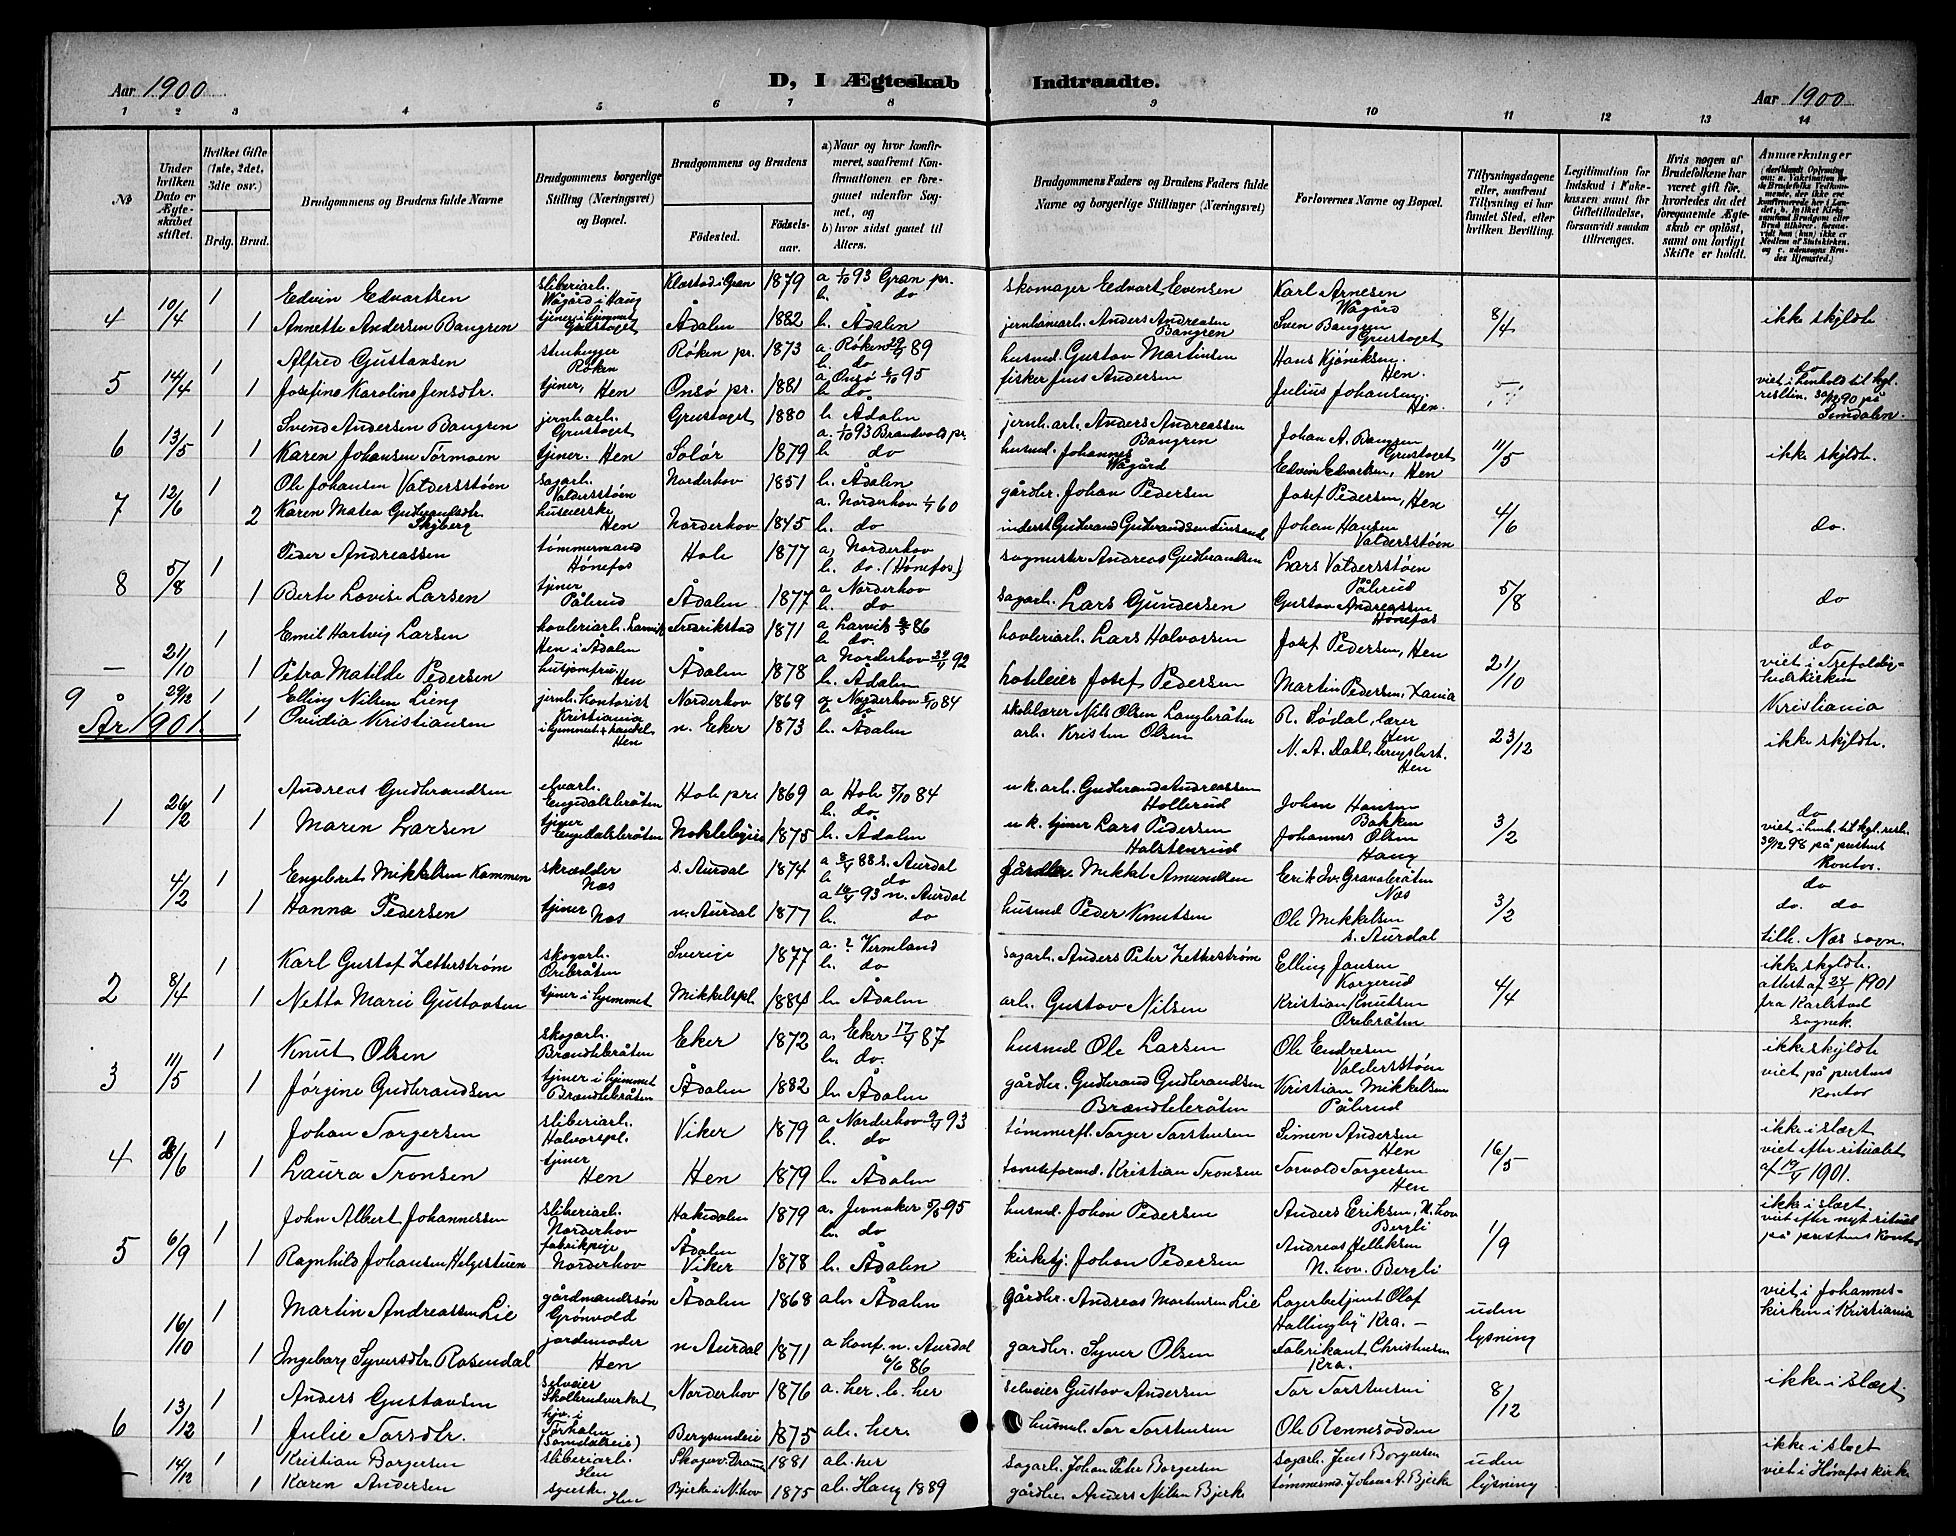 Aar 1900
D, I Ægteskab
Indtraadte.
Aar 1900
1 2 3 4 5 6 7 8 9 10 11 12 13 14
No
Under hvilken Dato er Ægteskabet stiftet.
Hvilket Gifte (1ste, 2det, 3dte osv.)
Brdg. Brud.
Brudgommens og Brudens fulde Navne
Brudgommens borgerlige Stilling (Næringsvei) og Bopæl.
Brudgommens og Brudens
Fødested.
Fødselsaar.
a) Naar og hvor konfirmeret, saafremt Konfirmationen er foregaaet udenfor Sognet, og
b) hvor sidst gaaet til Alters.
Brudgommens Faders og Brudens Faders fulde Navne og borgerlige Stillinger (Næringsvei)
Forlovernes Navne og Bopæl.
Tillysningsdagene eller, saafremt Tillysning ei har fundet Sted, efter hvilken Bevilling.
Legitimation for Indskud i Enkekassen samt for Giftetilladelse, forsaavidt saadan tiltrænges.
Hvis nogen af Brudefolkene har været gift før, hvorledes da det foregaaende Ægteskab er opløst, samt om lovligt Skifte er holdt.
Anmærkninger
4 10/4 1 Edvin Edvartsen sliberiarb. Wågård i Haug Klæstad i Gran 1879 a 1/10 93 Gran pr. b. do skomager Edvart Evensen Karl Arnesen Wågård 8/4 ikke skyldte
1 Annette Andersen Bangren tjener i hjemmet Grustaget Ådalen 1882 b. Ådalen jernbanearb. Anders Andreasen Bangren Sven Bangren Grustaget
5 14/4 1 Alfred Gustavsen stenhugger Røken Røken pr. 1873 a. Røken 89 b. do husmd. Gustav Martinsen Hans Kjøniksen Hen. do
1 Josefine Karoline Jensdtr. tjener, Hen Onsø pr. 1881 a Onsø 95 b do fisker Jens Andersen Julius Johansen Hen. viet i henhold til kgl. 90 på
6 13/5 1 Svend Andersen Bangren jernb. arb. Grustaget Grustaget 1880 b. Ådalen jernb. arb. Anders Andreassen Bangren Johan A. Bangren Grustaget 11/5 ikke skyldte
1 Karen Johansen Tormoen tjener. Hen Solør 1879 a. 1/10 93 Brandvold pr. b do husmd. Johannes Wågård Edvin Edvartsen, Hen
7 12/6 1 Ole Johansen Valdersstøen sagarb. Valdersstøen Norderhov 1851 b. Ådalen gårdbr. Johan Pedersen Josef Pedersen, Hen 4/6 do.
2 Karen Matea Gudbrandsdtr. Skjberg huseierske Hen Norderhov 1845 a. Norderhov 60 b. do inderst Gudbrand Gudbrandsen Johan Hansen Valdersstøen
8 5/8 1 Peder Andreassen tømmermand Hønefos Hole 1877 a, Norderhov b. do. (Hønefos) sagmester Andreas Gudbrandsen Lars Valdersstøen Pålerud 5/8 do
1 Berte Lovise Larsen tjener Pålerud Ådalen 1877 a Norderhov b. do sagarb. Lars Gundersen Gustav Andreassen Hønefos
— 21/10 1 Emil Hartvig Larsen høvleriarb. Larvik Hen i Ådalen Fredrikstad 1871 a Larvik 86 b. do høvleriarb. Lars Halvorsen Josef Pedersen, Hen 21/10 do viet i Trefoldighedskirken
1 Petra Matilde Pedersen husjomfru Hen Ådalen 1878 a Norderhov 92 b. Ådalen hoteleier Josef Pedersen Martin Pedersen, Xania Kristiania
9 29/12 1 Elling Nilsen Lieng jernb. Kontorist Kristiania Norderhov 1869 a Norderhov 5/10 84 b. do skolelærer Nils Olsen Langbråten R. Sødal, lærer Hen 23/12 ikke skyldte.
1 Ovidia Kristiansen i hjemmet Hen n. Eker 1873 b. Ådalen arb. Kristen Olsen N. A. Dahl, Hen
År 1901.
1 26/2 1 Andreas Gudbrandsen elvarb. Engedalsbråten Hole pr. 1869 a Hole 5/10 84 b. do u k. arb. Gudbrand Andreassen Hollerud Johan Hansen Bakken 3/2 do
1 Maren Larsen tjener Engedalsbråten 1875 b. Ådalen u k. tjener Lars Pedersen Halstenrud Johannes Olsen Haug viet i hent. til kgl. resl. 30/12 98 på prestens kontor.
4/2 1 Engebret Mikkelsen Kammen skrædder Næs s. Aurdal 1874 a 88 s. Aurdal b do gårdbr. Mikkel Amundsen Erik Iv. Gravabråten Næs 3/2 do
1 Hanna Pedersen tjener Næs n. Aurdal 1877 a 93 n. Aurdal b. do husmd Peder Knutsen Ole Mikkelsen s. Aurdal do. do tilh. Næs sogn.
2 8/4 1 Karl Gustaf Zetterstrøm skogarb. Orebråten Sverige 1877 a. ? Vermland b. do sagarb. Anders Peter Zetterstrøm Elling Jansen Korgerud 4/4 ikke skyldte. attest af 1901
1 Netta Marie Gustavsen tjener i hjemmet Mikkelspl. 1884 b. Ådalen arb. Gustav Nilsen Kristian Knutsen Orebråten fra Karlstad sognek.
3 11/5 1 Knut Olsen skogarb. Brændtebråten Eker 1872 a. Eker 87 b. do. husmd Ole Larsen Ole Endresen Valdersstøen ikke skyldte
1 Jørgine Gudbrandsen tjener i hjemmet Brændtebråten Ådalen 1882 b. Ådalen gårdbr. Gudbrand Gudbrandsen Brændtebråten Kristian Mikkelsen Pålerud viet på prestens kontor
4 /6 1 Johan Torgersen sliberiarb. Halvorspl. Viker 1879 a Norderhov 93 b. do tømmerfl. Torger Torstensen Simen Andersen Hen 16/5 ikke i slægt
1 Laura Tronsen tjener Hen Hen 1879 b. Ådalen tomteformd. Kristian Tronsen Torvald Torgersen Hen viet efter ritualet af 1901.
5 6/9 1 John Albert Johannessen sliberiarb. Norderhov Hakedalen 1879 a. Jevnaker 95 b. do husmd. Johan Pedersen Anders Eriksen, N. hov Bergli 1/9 ikke i slægt
1 Ragnhild Johansen Helgestuen fabrikpige Norderhov Ådalen Viker 1878 b. Ådalen kirketj. Johan Pedersen Andreas Helleksen N. hov. Bergli viet efter nyt ritual på prestens kontor
16/10 1 Martin Andreassen Lie gårdmandssøn Grønvold Ådalen 1868 ab. Ådalen Gårdbr. Andreas Martinsen Lie Lagerbetjent Olaf Hallingby Kra. — uden lysning viet i Johanneskirken i Kristiania
1 Ingeborg Syversdtr. Rosendal jordemoder Hen n Aurdal 1871 a konf. n. Aurdal 6/6 86 gårdbr. Syver Olsen Fabrikant Christensen Kra.
6 13/12 1 Anders Gustavsen selveier Norderhov 1876 a. her. b. her selveier Gustav Andersen Tor Torstensen 8/12 ikke i slægt
1 Julie Torsdtr. hjv. i 1875 ab. her. husmd. Tor Torstensen Ole Rennesødden
— 14/12 1 Kristian Borgersen sliberiarb. Hen Skoger, Dramn 1881 ab. her sagarb. Johan Peter Borgersen sagarb. Jens Borgersen uden lysning ikke i slægt
1 Karen Andersen Hen Bjerke i N.hov 1875 ab. Haug 1889 gårdbr. Anders Nilsen Bjerke tømmermd. Johan A. Bjerke viet i Hønefos kirke